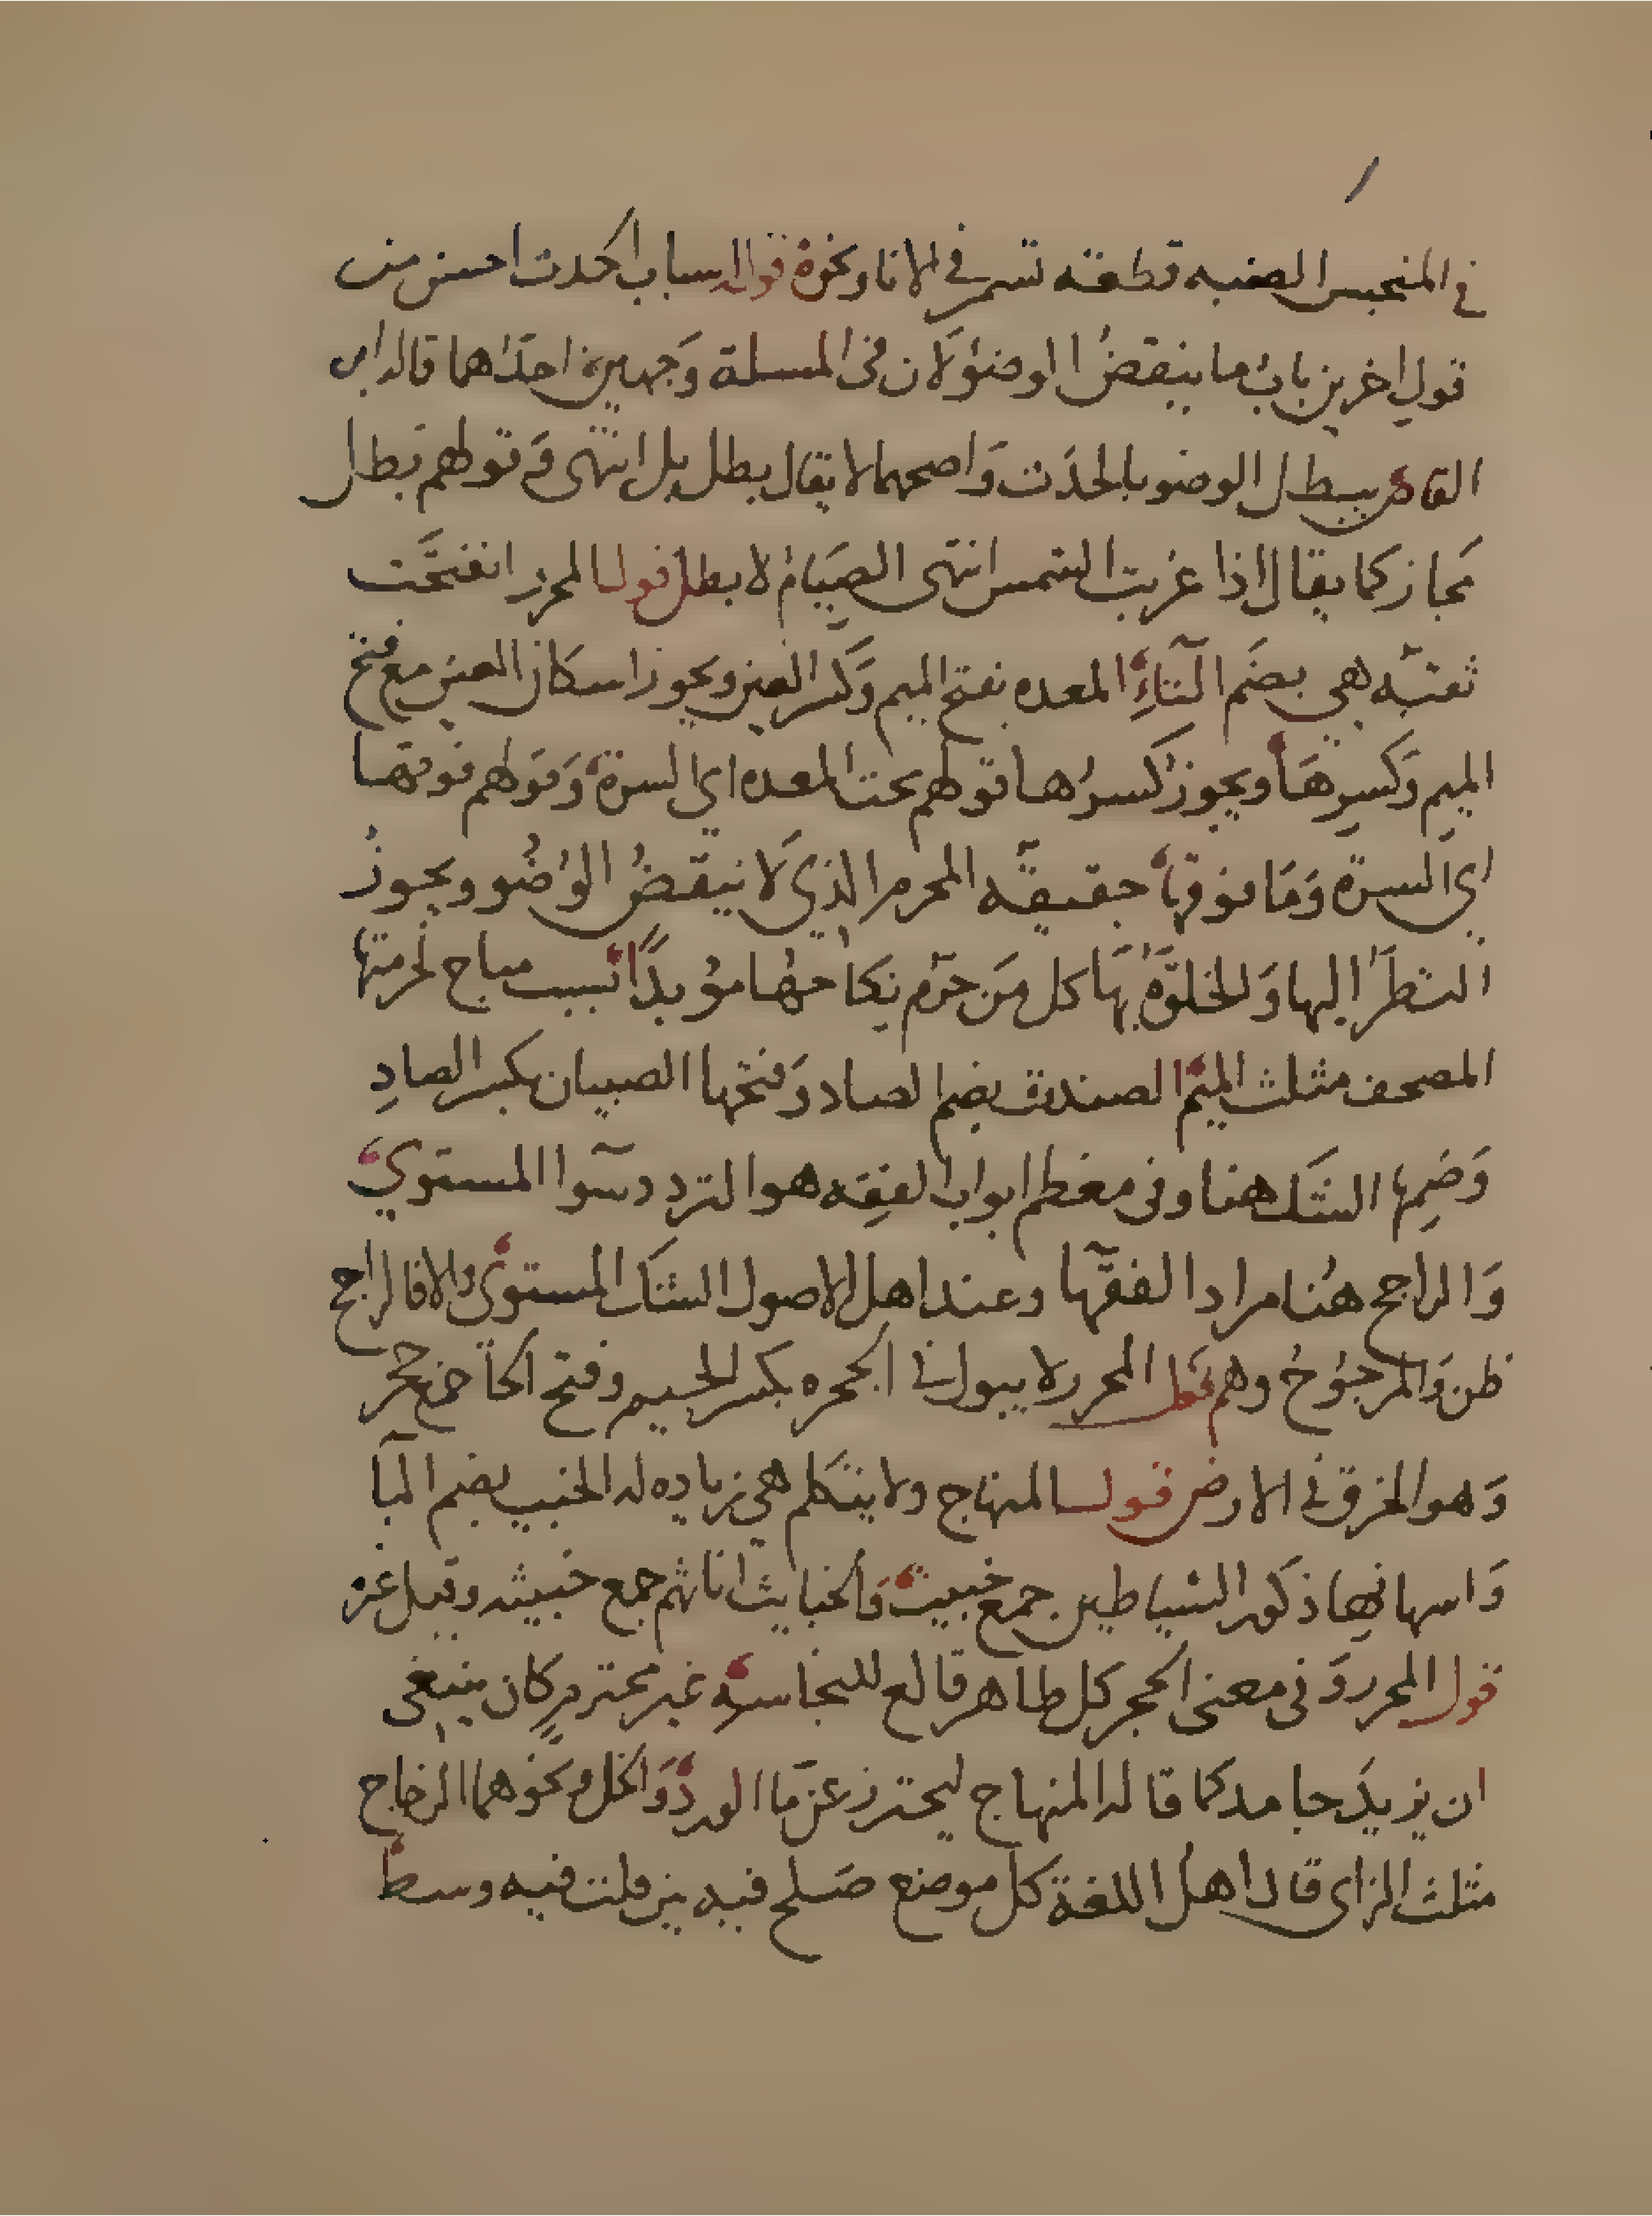 في المنحبس الضبه قطعه تسمر في الانا ونحوه قوله اسباب الحدث احسن من
قول اخرين باب ما ينقض الوضوء لان في المسلة وجهين احداهما قاله ابن
القاص يبطل الوضو بالحدث واصحهما لا يقال بطل بل انتهى وقولهم بطل
مجاز كما يقال اذا غربت الشمس انتهى الصيام لا بطل قول المحرر انفتحت
ثقبه هي بضم الثاء المعده بفتح الميم وكسر العين ويجوز اسكان العين مع فتح
الميم وكسرها ويجوز كسرها قولهم تحت المعده اي السرة وقولهم فوقها
اي السرة وما فوقها حقيقه المحرم الذي لا ينقض الوضو ويجوز
النظر اليها والخلوة بها كل من حرم نكاحها مؤبدا بسبب مباح لحرمتها
المصحف مثلث الميم الصندق بضم الصاد وفتحها الصبيان بكسر الصاد
وضمها الشك هنا وفي معظم ابواب الفقه هو التردد سوا المستوي
والراجح هنا مراد الفقها وعند اهل الاصول الشك المستوي والا فالراجح
ظن والمرجوح وهم قول المحرر لا يبول في الجحره بكسر الجيم وفتح الحا جمع جحر
وهو الخرق في الارض قول المنهاج ولا يتكلم هي زياده له الخبث بضم البا
واسكانها ذكور الشياطين جمع خبيث والخبايث اناثهم جمع خبيثه وقيل غير
قول المحرر وفي معنى الحجر كل طاهر قالع للنجاسه غير محترم كان ينبغي
ان يزيد جامد كما قاله المنهاج ليحترز عن ما الورد والخل ونحوهما الزجاج
مثلث الزاي قال اهل اللغة كل موضع صلح فيه بين قلت فيه وسط